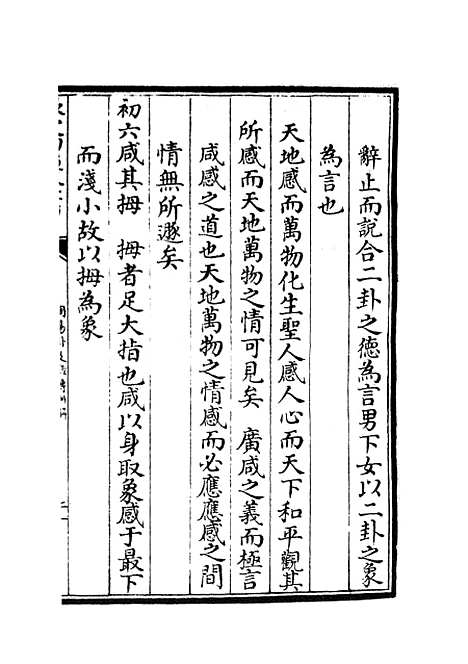 辭止而說合二卦之德為言男下女以二卦之象
為言也
天地感而萬物化生聖人感人心而天下和平觀其
所感而天地萬物之情可見矣　廣咸之義而極言
咸感之道也天地萬物之情感而必應應感之間
情無所遯矣
初六咸其拇　拇者足大指也咸以身取象感于最下
而淺小故以拇為象